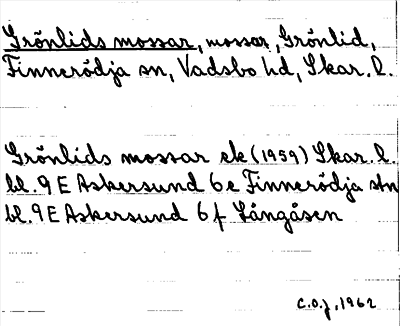 Grönlids mossar, mossar, Grönlid,
Finnerödja sn, Vadsbo hd, Skar. l.
Grönlids mossar ek (1959) Skar. l.
bl. 9 E Askersund 6 e Finnerödja stn
bl. 9 E Askersund 6 f Långåsen
C.O.J., 1962